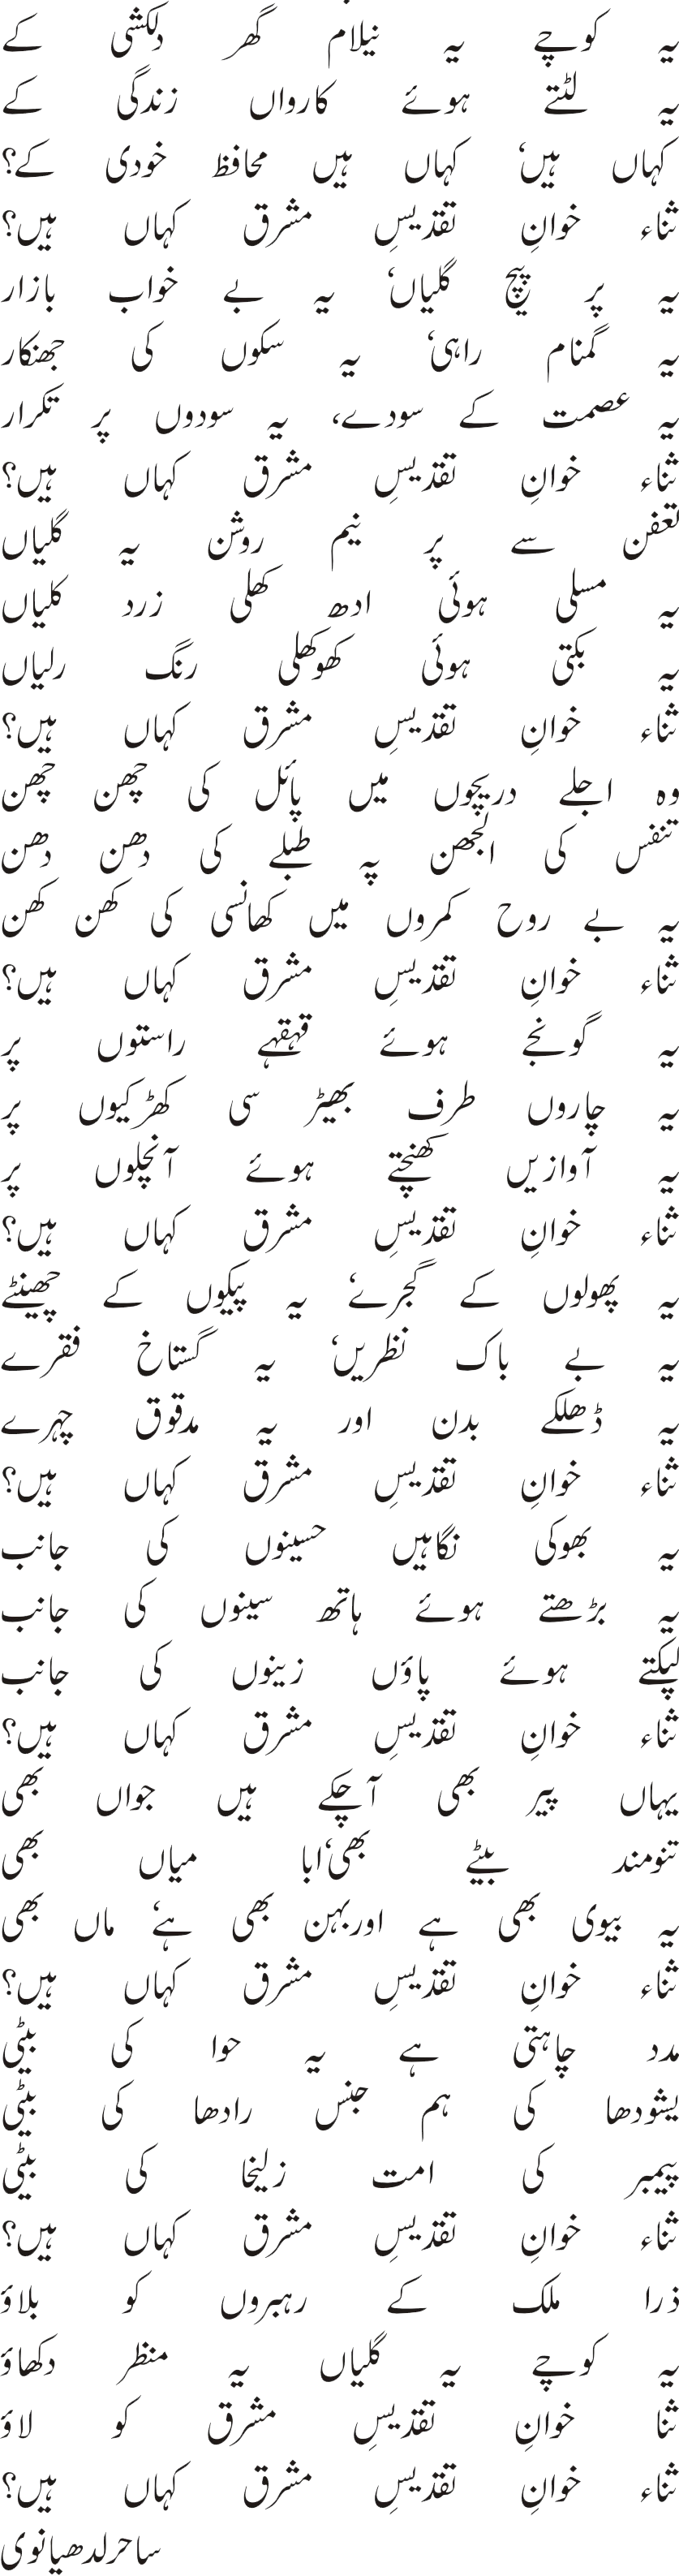 یہ کوچے یہ نیلام گھر دلکشی کے
یہ لٹتے ہوئے کارواں زندگی کے
کہاں ہیں‘ کہاں ہیں محافظ خودی کے؟
ثناء خوانِ تقدیسِ مشرق کہاں ہیں؟
یہ پر پیچ گلیاں‘ یہ بے خواب بازار
یہ گمنام راہی‘ یہ سکوں کی جھنکار
یہ عصمت کے سودے، یہ سودوں پر تکرار
ثناء خوانِ تقدیسِ مشرق کہاں ہیں؟
تعفن سے پر نیم روشن یہ گلیاں
یہ مسلی ہوئی ادھ کھلی زرد کلیاں
یہ بکتی ہوئی کھوکھلی رنگ رلیاں
ثناء خوانِ تقدیسِ مشرق کہاں ہیں؟
وہ اجلے دریچوں میں پائل کی چھن چھن
تنفس کی الجھن پہ طبلے کی دھن دھن
یہ بے روح کمروں میں کھانسی کی کھن کھن
ثناء خوانِ تقدیسِ مشرق کہاں ہیں؟
یہ گونجے ہوئے قہقہے راستوں پر
یہ چاروں طرف بھیڑ سی کھڑکیوں پر
یہ آوازیں کھنچتے ہوئے آنچلوں پر
ثناء خوانِ تقدیسِ مشرق کہاں ہیں؟
یہ پھولوں کے گجرے‘ یہ پیکوں کے چھینٹے
یہ بے باک نظریں‘ یہ گستاخ فقرے
یہ ڈھلکے بدن اور یہ مدقوق چہرے
ثناء خوانِ تقدیسِ مشرق کہاں ہیں؟
یہ بھوکی نگاہیں حسینوں کی جانب
یہ بڑھتے ہوئے ہاتھ سینوں کی جانب
لپکتے ہوئے پاؤں زینوں کی جانب
ثناء خوانِ تقدیسِ مشرق کہاں ہیں؟
یہاں پیر بھی آچکے ہیں جواں بھی
تنومند بیٹے بھی‘ابا میاں بھی
یہ بیوی بھی ہے اوربہن بھی ہے‘ ماں بھی
ثناء خوانِ تقدیسِ مشرق کہاں ہیں؟
مدد چاہتی ہے یہ حوا کی بیٹی
یشودھا کی ہم جنس رادھا کی بیٹی
پیمبر کی امت زلیخا کی بیٹی
ثناء خوانِ تقدیسِ مشرق کہاں ہیں؟
ذرا ملک کے رہبروں کو بلاؤ
یہ کوچے یہ گلیاں یہ منظر دکھاؤ
ثنا خوانِ تقدیسِ مشرق کو لاؤ
ثناء خوانِ تقدیسِ مشرق کہاں ہیں؟
ساحرلدھیانوی